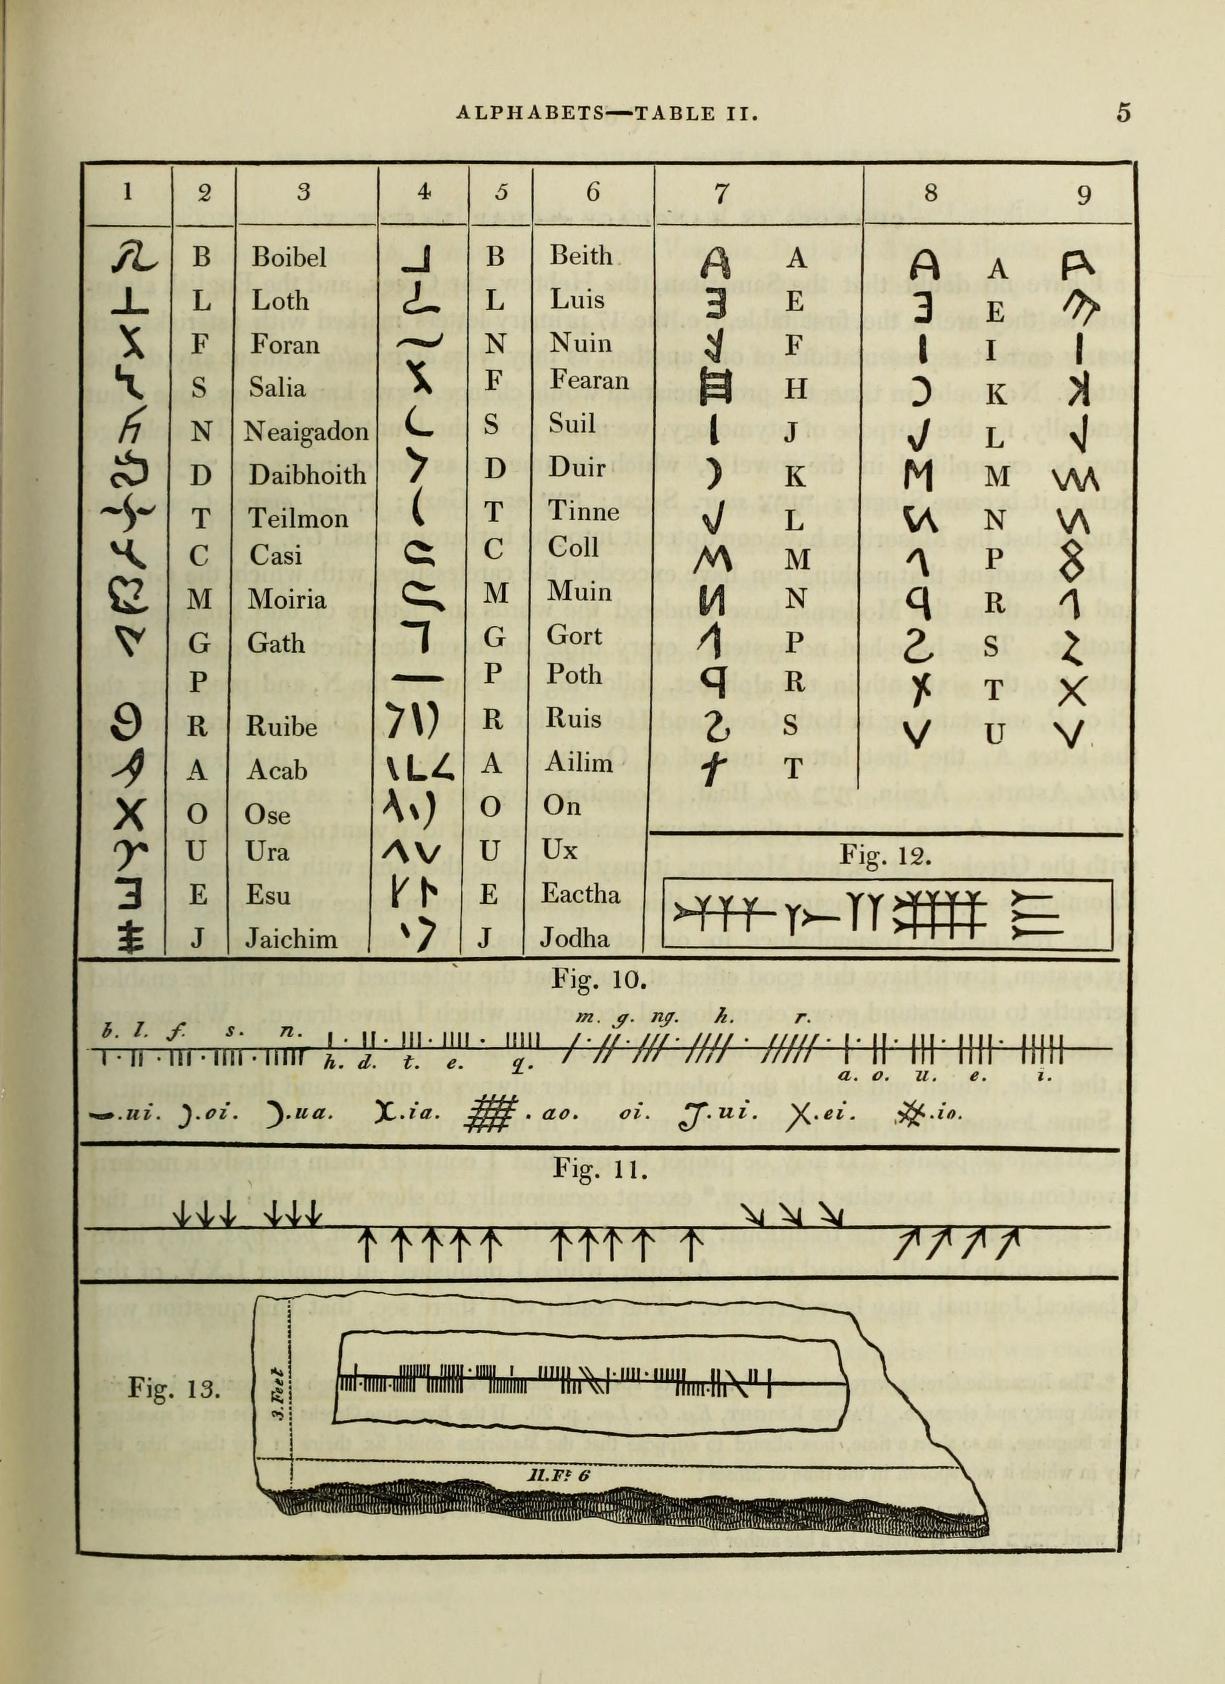 ALPHABETS—TABLE II. 5
1 2 3 4 5 6 7 8 9
B Boibel B Beith A A
L Loth L Luis E E
F Foran N Nuin F I
S Salia F Fearan H K
N Neaigadon S Suil J L
D Daibhoith D Duir K M
T Teilmon T Tinne L N
C Casi C Coll M P
M Moiria M Muin N R
G Gath G Gort P S
P P Poth R T
R Ruibe R Ruis S U
A Acab A Ailim T
O Ose O On
U Ura U Ux Fig. 12.
E Esu E Eactha
J Jaichim J Jodha
Fig. 10.
m. g. ng. h. r.
b. l. f. s. n.
h. d. t. e. q.
a. o. u. e. i.
.ui. .oi. .ua. .ia. . ao. oi. .ui. .ei. .io.
Fig. 11.
Fig. 13.
3.Feet
11.Ft 6